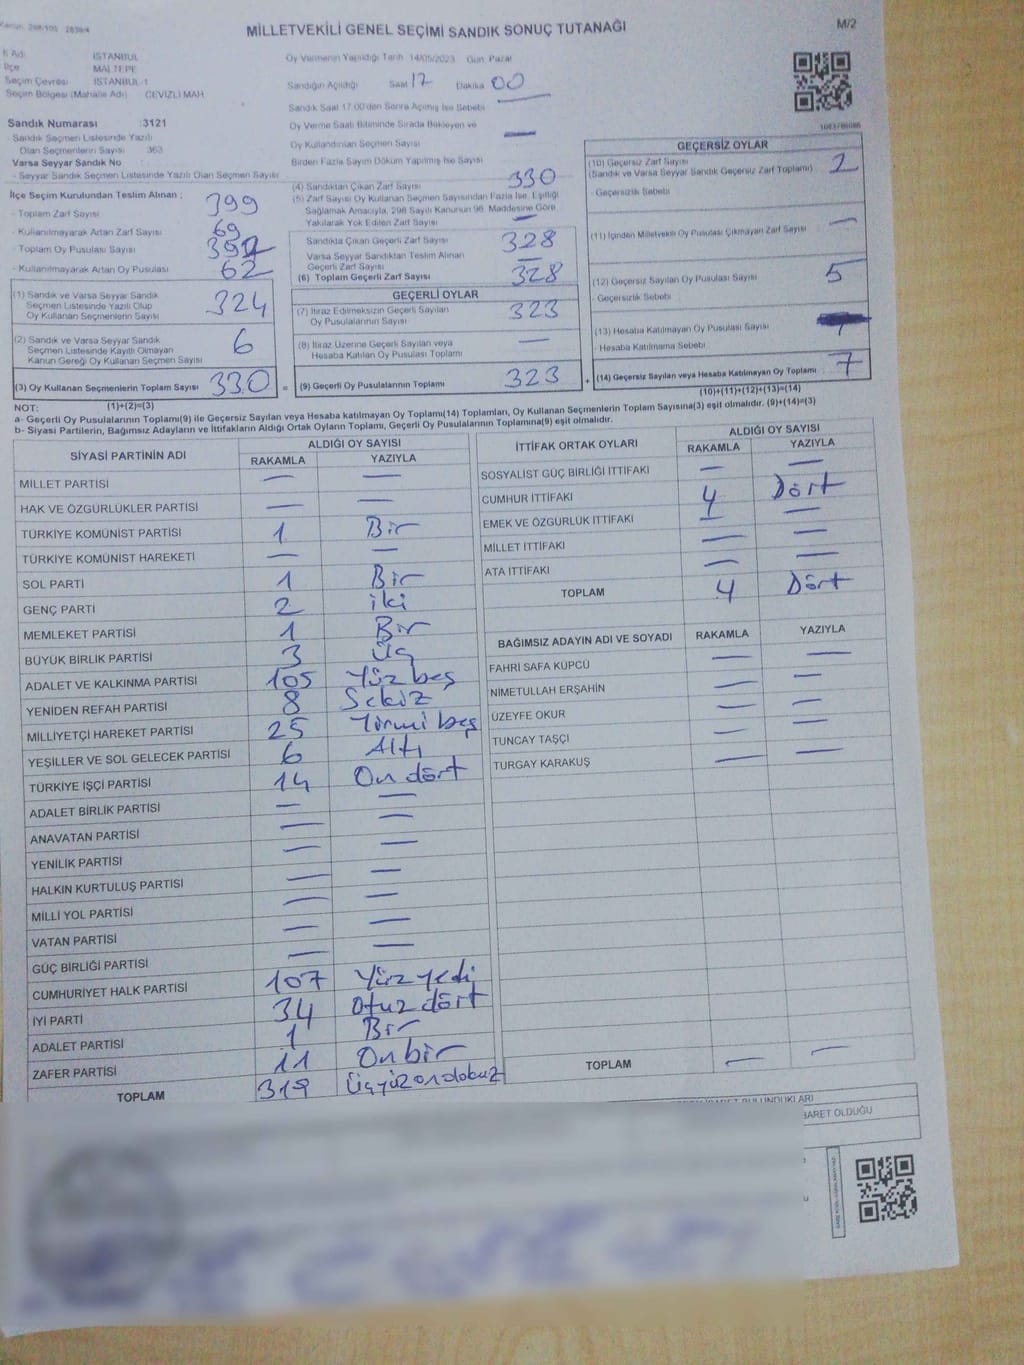 MİLLETVEKİLİ GENEL SEÇİMİ SANDIK SONUÇ TUTANAĞI
M/2
İSTANBUL
İlçe MALTEPE
Seçim Çevresi İSTANBUL-1
Seçim Bölgesi (Mahalle Adı) CEVİZLİ MAH.
Sandık Numarası :3121
- Sandık Seçmen Listesinde Yazılı
Olan Seçmenlerin Sayısı 363
Varsa Seyyar Sandık No :
- Seyyar Sandık Seçmen Listesinde Yazılı Olan Seçmen Sayısı
Oy Vermenin Yapıldığı Tarih 14/05/2023 Gün Pazar
Sandığın Açıldığı Saat 17 Dakika 00
Sandık Saat 17.00'den Sonra Açılmış İse Sebebi
Oy Verme Saati Bitiminde Sırada Bekleyen ve —
Oy Kullandırılan Seçmen Sayısı
Birden Fazla Sayım Döküm Yapılmış İse Sayısı
İlçe Seçim Kurulundan Teslim Alınan ;
- Toplam Zarf Sayısı 399
- Kullanılmayarak Artan Zarf Sayısı 69
- Toplam Oy Pusulası Sayısı
- Kullanılmayarak Artan Oy Pusulası 62
(1) Sandık ve Varsa Seyyar Sandık
Seçmen Listesinde Yazılı Olup
Oy Kullanan Seçmenlerin Sayısı 324
(2) Sandık ve Varsa Seyyar Sandık
Seçmen Listesinde Kayıtlı Olmayan
Kanun Gereği Oy Kullanan Seçmen Sayısı 6
(3) Oy Kullanan Seçmenlerin Toplam Sayısı 330 =
(4) Sandıktan Çıkan Zarf Sayısı 330
(5) Zarf Sayısı Oy Kullanan Seçmen Sayısından Fazla İse, Eşitliği
Sağlamak Amacıyla, 298 Sayılı Kanunun 98. Maddesine Göre
Yakılarak Yok Edilen Zarf Sayısı —
Sandıkta Çıkan Geçerli Zarf Sayısı 328
Varsa Seyyar Sandıktan Teslim Alınan
Geçerli Zarf Sayısı —
(6) Toplam Geçerli Zarf Sayısı 328
GEÇERLİ OYLAR
(7) İtiraz Edilmeksizin Geçerli Sayılan
Oy Pusulalarının Sayısı 323
(8) İtiraz Üzerine Geçerli Sayılan veya
Hesaba Katılan Oy Pusulası Toplamı —
(9) Geçerli Oy Pusulalarının Toplamı 323 +
GEÇERSİZ OYLAR
(10) Geçersiz Zarf Sayısı 2
(Sandık ve Varsa Seyyar Sandık Geçersiz Zarf Toplamı)
- Geçersizlik Sebebi
(11) İçinden Milletvekili Oy Pusulası Çıkmayan Zarf Sayısı —
(12) Geçersiz Sayılan Oy Pusulası Sayısı 5
- Geçersizlik Sebebi
(13) Hesaba Katılmayan Oy Pusulası Sayısı
- Hesaba Katılmama Sebebi
(14) Geçersiz Sayılan veya Hesaba Katılmayan Oy Toplamı 7
NOT: (1)+(2)=(3)
(10)+(11)+(12)+(13)=(14)
a- Geçerli Oy Pusulalarının Toplamı(9) ile Geçersiz Sayılan veya Hesaba katılmayan Oy Toplamı(14) Toplamları, Oy Kullanan Seçmenlerin Toplam Sayısına(3) eşit olmalıdır. (9)+(14)=(3)
b- Siyasi Partilerin, Bağımsız Adayların ve İttifakların Aldığı Ortak Oyların Toplamı, Geçerli Oy Pusulalarının Toplamına(9) eşit olmalıdır.
SİYASİ PARTİNİN ADI ALDIĞI OY SAYISI
RAKAMLA YAZIYLA
MİLLET PARTİSİ — —
HAK VE ÖZGÜRLÜKLER PARTİSİ — —
TÜRKİYE KOMÜNİST PARTİSİ 1 Bir
TÜRKİYE KOMÜNİST HAREKETİ — —
SOL PARTİ 1 Bir
GENÇ PARTİ 2 iki
MEMLEKET PARTİSİ 1 Bir
BÜYÜK BİRLİK PARTİSİ 3 Üç
ADALET VE KALKINMA PARTİSİ 105 Yüz beş
YENİDEN REFAH PARTİSİ 8 Sekiz
MİLLİYETÇİ HAREKET PARTİSİ 25 Yirmi beş
YEŞİLLER VE SOL GELECEK PARTİSİ 6 Altı
TÜRKİYE İŞÇİ PARTİSİ 14 On dört
ADALET BİRLİK PARTİSİ — —
ANAVATAN PARTİSİ — —
YENİLİK PARTİSİ — —
HALKIN KURTULUŞ PARTİSİ — —
MİLLİ YOL PARTİSİ — —
VATAN PARTİSİ — —
GÜÇ BİRLİĞİ PARTİSİ — —
CUMHURİYET HALK PARTİSİ 107 Yüz yedi
İYİ PARTİ 34 Otuz dört
ADALET PARTİSİ 1 Bir
ZAFER PARTİSİ 11 On bir
TOPLAM 319 Üçyüz on dokuz
İTTİFAK ORTAK OYLARI ALDIĞI OY SAYISI
RAKAMLA YAZIYLA
SOSYALİST GÜÇ BİRLİĞİ İTTİFAKI — —
CUMHUR İTTİFAKI 4 Dört
EMEK VE ÖZGÜRLÜK İTTİFAKI — —
MİLLET İTTİFAKI — —
ATA İTTİFAKI — —
TOPLAM 4 Dört
BAĞIMSIZ ADAYIN ADI VE SOYADI RAKAMLA YAZIYLA
FAHRİ SAFA KÜPCÜ — —
NİMETULLAH ERŞAHİN — —
ÜZEYFE OKUR — —
TUNCAY TAŞÇI — —
TURGAY KARAKUŞ — —
TOPLAM — —
BARET OLDUĞU